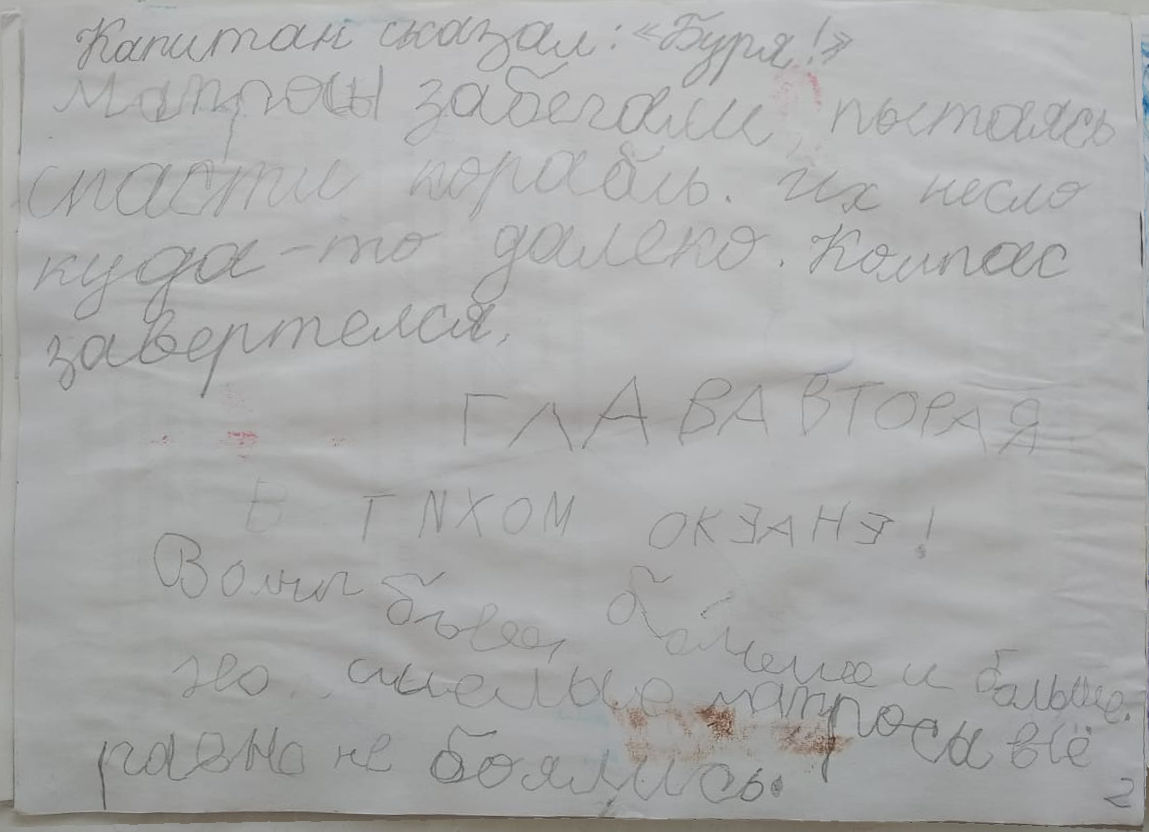 Капитан сказал: «Буря!»
Матросы забегали, пытаясь
спасти корабль. Их несло
куда-то далеко. Компас
завертелся.
ГЛАВА ВТОРАЯ
В ТИХОМ ОКЭАНЭ!
Волны были больше и больше.
но смелые матросы всё
равно не боялись.
2